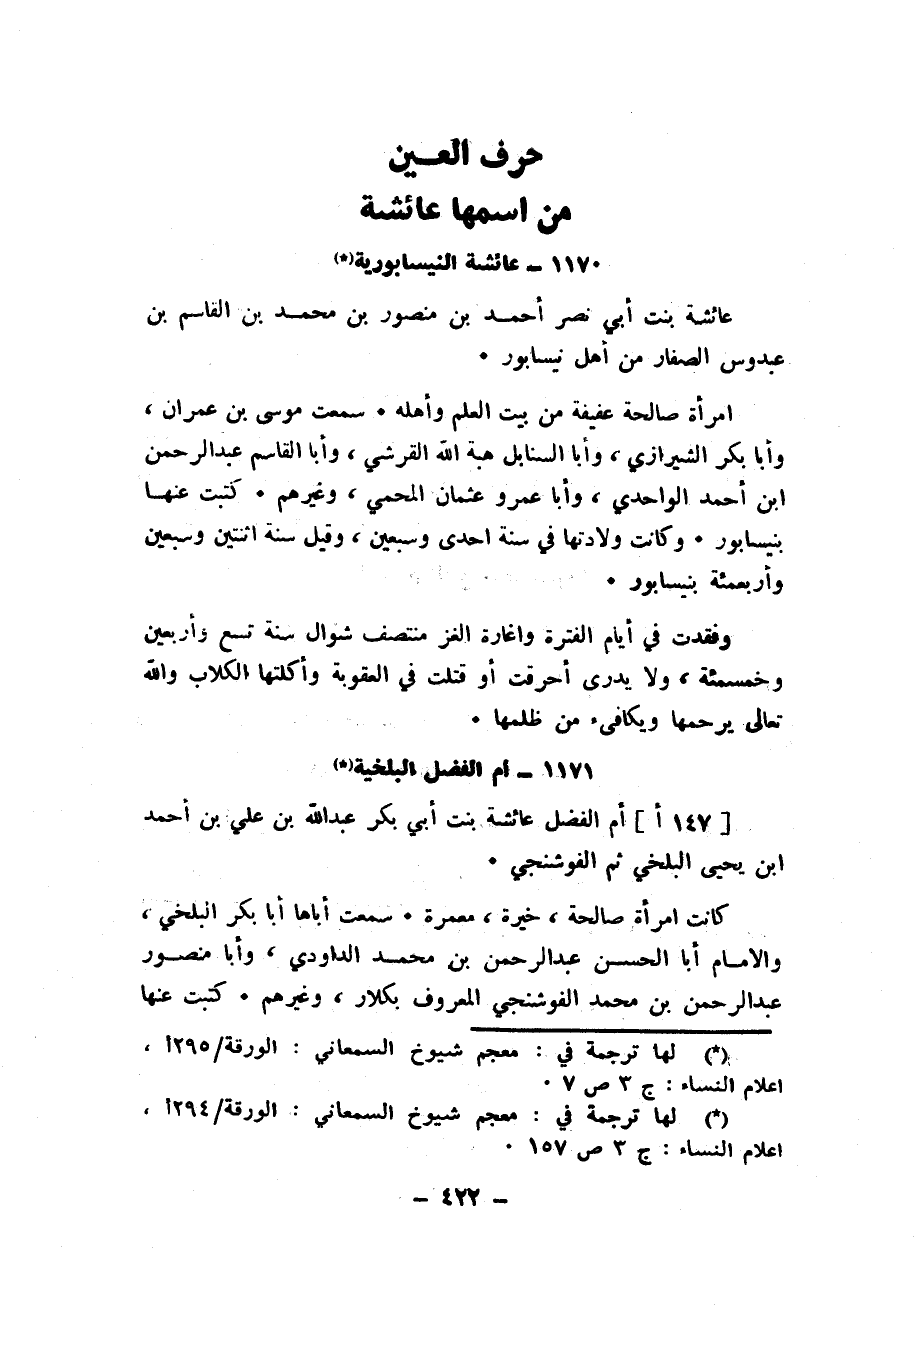 حرف العـــين
من اسمها عائشة
١١٧٠ ـ عائشة النيسابورية(*)
عائشة بنت أبي نصر أحمـــد بن منصور بن محمـــد بن القاسم بن
عبدوس الصفار من أهل نيسابور ٠
امرأة صالحة عفيفة من بيت العلم وأهله ٠ سمعت موسى بن عمران ،
وأبا بكر الشيرازي ، وأبا السنابل هبة الله القرشي ، وأبا القاسم عبدالرحمن
ابن أحمد الواحدي ، وأبا عمرو عثمان المحمي ، وغيرهم ٠ كتبت عنهـا
بنيسابور ٠ وكانت ولادتها في سنة احدى وسبعين ، وقيل سنة اثنتين وسبعين
وأربعمئة بنيسابور ٠
وفقدت في أيام الفترة واغارة الغز منتصف شوال سنة تسع وأربعين
وخمسمئة ، ولا يدرى أحرقت أو قتلت في العقوبة وأكلتها الكلاب والله
تعالى يرحمها ويكافىء من ظلمها ٠
١١٧١ ـ أم الفضل البلخية(*)
[ ١٤٧ أ ] أم الفضل عائشة بنت أبي بكر عبدالله بن علي بن أحمد
ابن يحيى البلخي ثم الفوشنجي ٠
كانت امرأة صالحة ، خيرة ، معمرة ٠ سمعت أباها أبا بكر البلخي ،
والامـام أبا الحســن عبدالرحمن بن محمـد الداودي ، وأبا منصــور
عبدالرحمن بن محمد الفوشنجي المعروف بكلار ، وغيرهم ٠ كتبت عنها
(*) لها ترجمة في : معجم شيوخ السمعاني : الورقة/٢٩٥أ ،
اعلام النساء : ج ٣ ص ٧ ٠
(*) لها ترجمة في : معجم شيوخ السمعاني : الورقة/٢٩٤أ ،
اعلام النساء : ج ٣ ص ١٥٧ ٠
ـ ٤٢٢ ـ